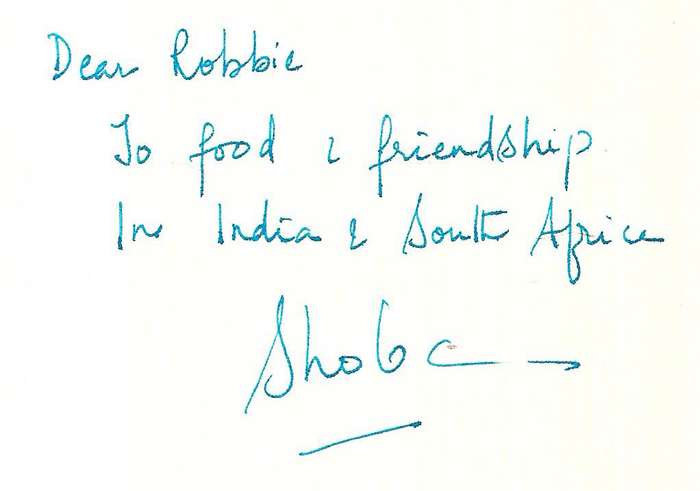 Dear Robbie
To food & friendship
In India & South Africa
Shoba